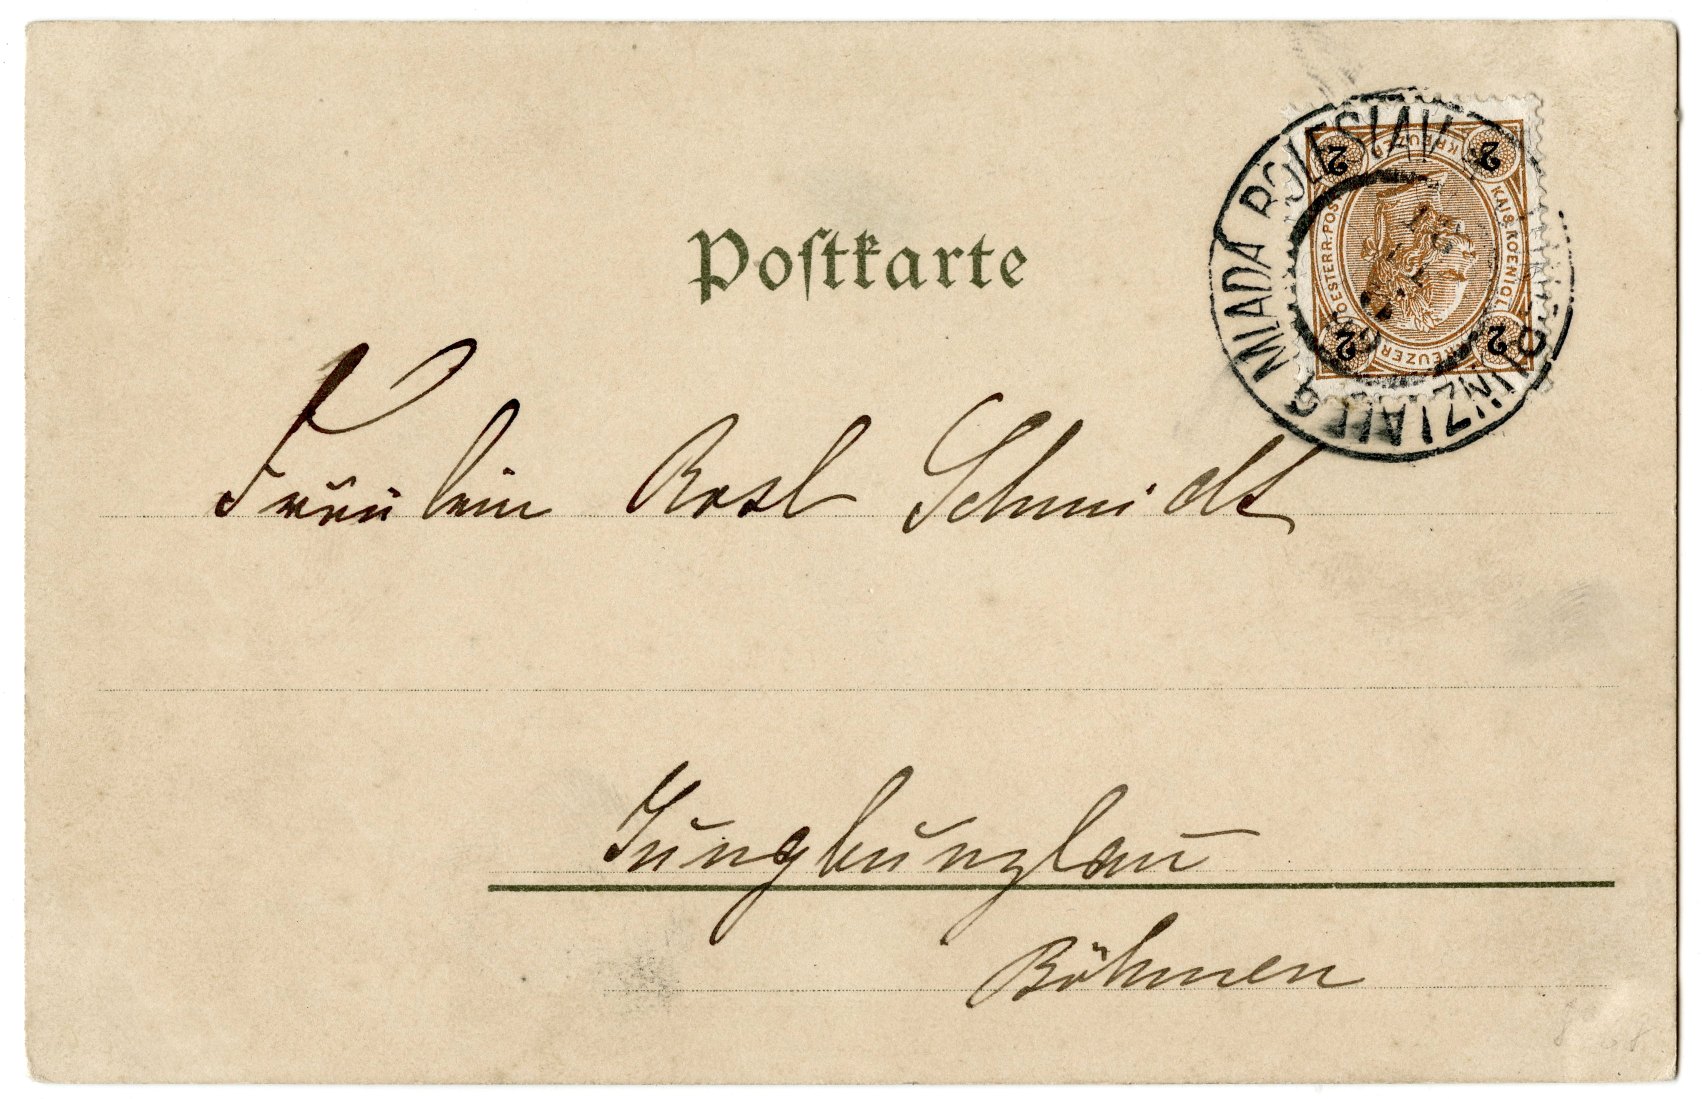 Postkarte
MLADÁ BOLESLAV
JUNGBUNZLAU
2 2
KREUZER
OESTERR. POST
KAIS. KOENIGL.
KREUZER
2 2
Fräulein Rosl Schmidt
Jungbunzlau
Böhmen